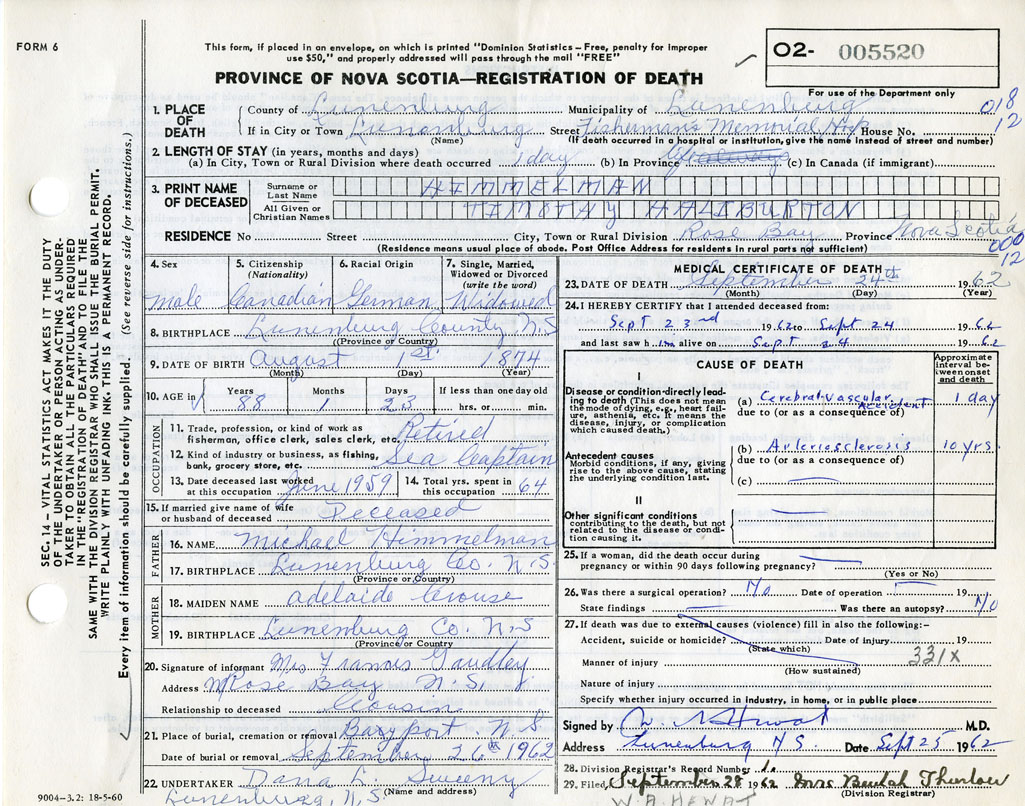 FORM 6
This form, if placed in an envelope, on which is printed "Dominion Statistics – Free, penalty for improper
use $50," and properly addressed will pass through the mail "FREE"
PROVINCE OF NOVA SCOTIA—REGISTRATION OF DEATH
02- 005520
For use of the Department only
018
12
1. PLACE OF DEATH
County of Lunenburg Municipality of Lunenburg
If in City or Town Lunenburg Street Fisherman's Memorial Hosp House No.
(Name) (If death occurred in a hospital or institution, give the name instead of street and number)
2. LENGTH OF STAY (in years, months and days)
(a) In City, Town or Rural Division where death occurred 1 day (b) In Province (c) In Canada (if immigrant)
3. PRINT NAME OF DECEASED
Surname or Last Name HIMMELMAN
All Given or Christian Names TIMOTHY HALIBURTON
RESIDENCE No Street City, Town or Rural Division Rose Bay Province Nova Scotia
(Residence means usual place of abode. Post Office Address for residents in rural parts not sufficient)
000
12
4. Sex
Male
5. Citizenship (Nationality)
Canadian
6. Racial Origin
German
7. Single, Married, Widowed or Divorced (write the word)
Widowed
8. BIRTHPLACE Lunenburg County N.S
(Province or Country)
9. DATE OF BIRTH August 1st 1874
(Month) (Day) (Year)
10. AGE in Years Months Days If less than one day old
88 1 23 hrs. or min.
OCCUPATION
11. Trade, profession, or kind of work as
fisherman, office clerk, sales clerk, etc. Retired
12. Kind of industry or business, as fishing,
bank, grocery store, etc. Sea Captain
13. Date deceased last worked
at this occupation June 1959
14. Total yrs. spent in
this occupation 64
15. If married give name of wife
or husband of deceased Deceased
FATHER
16. NAME Michael Himmelman
17. BIRTHPLACE Lunenburg Co. N.S.
(Province or Country)
MOTHER
18. MAIDEN NAME Adelaide Crouse
19. BIRTHPLACE Lunenburg Co. N.S
(Province or Country)
20. Signature of informant Mrs Francis
Address Rose Bay N.S.
Relationship to deceased Cousin
21. Place of burial, cremation or removal Bayport N.S
Date of burial or removal September 26th 1962
22. UNDERTAKER Dana L. Sweeny
(Name and address)
Lunenburg, N.S.
MEDICAL CERTIFICATE OF DEATH
23. DATE OF DEATH September 24th 1962
(Month) (Day) (Year)
24. I HEREBY CERTIFY that I attended deceased from:
Sept 23rd 1962 to Sept 24 1962
and last saw him alive on Sept. 24 1962
CAUSE OF DEATH
Approximate interval between onset and death
I
Disease or condition directly leading
to death (This does not mean
the mode of dying, e.g., heart failure,
asthenia, etc. It means the
disease, injury, or complication
which caused death.)
(a) Cerebral Vascular Accident 1 day
due to (or as a consequence of)
Antecedent causes
Morbid conditions, if any, giving
rise to the above cause, stating
the underlying condition last.
(b) Arteriosclerosis 10 yrs.
due to (or as a consequence of)
(c)
II
Other significant conditions
contributing to the death, but not
related to the disease or condition
causing it.
25. If a woman, did the death occur during
pregnancy or within 90 days following pregnancy?
(Yes or No)
26. Was there a surgical operation? No Date of operation 19
State findings Was there an autopsy? No
27. If death was due to external causes (violence) fill in also the following:–
Accident, suicide or homicide? Date of injury 19
(State which)
331X
Manner of injury
(How sustained)
Nature of injury
Specify whether injury occurred in industry, in home, or in public place
Signed by W A Hewat M.D.
Address Lunenburg N S. Date Sept 25 1962
28. Division Registrar's Record Number
29. Filed, September 28 1962 Mrs Beulah Thurlow
(Division Registrar)
W.A. HEWAT
SEC. 14 – VITAL STATISTICS ACT MAKES IT THE DUTY
OF THE UNDERTAKER OR PERSON ACTING AS UNDERTAKER
TO OBTAIN ALL THE PARTICULARS REQUIRED
IN THE "REGISTRATION OF DEATH" AND TO FILE THE
SAME WITH THE DIVISION REGISTRAR WHO SHALL ISSUE THE BURIAL PERMIT.
WRITE PLAINLY WITH UNFADING INK. THIS IS A PERMANENT RECORD.
Every item of information should be carefully supplied. (See reverse side for instructions.)
9004-3.2: 18-5-60